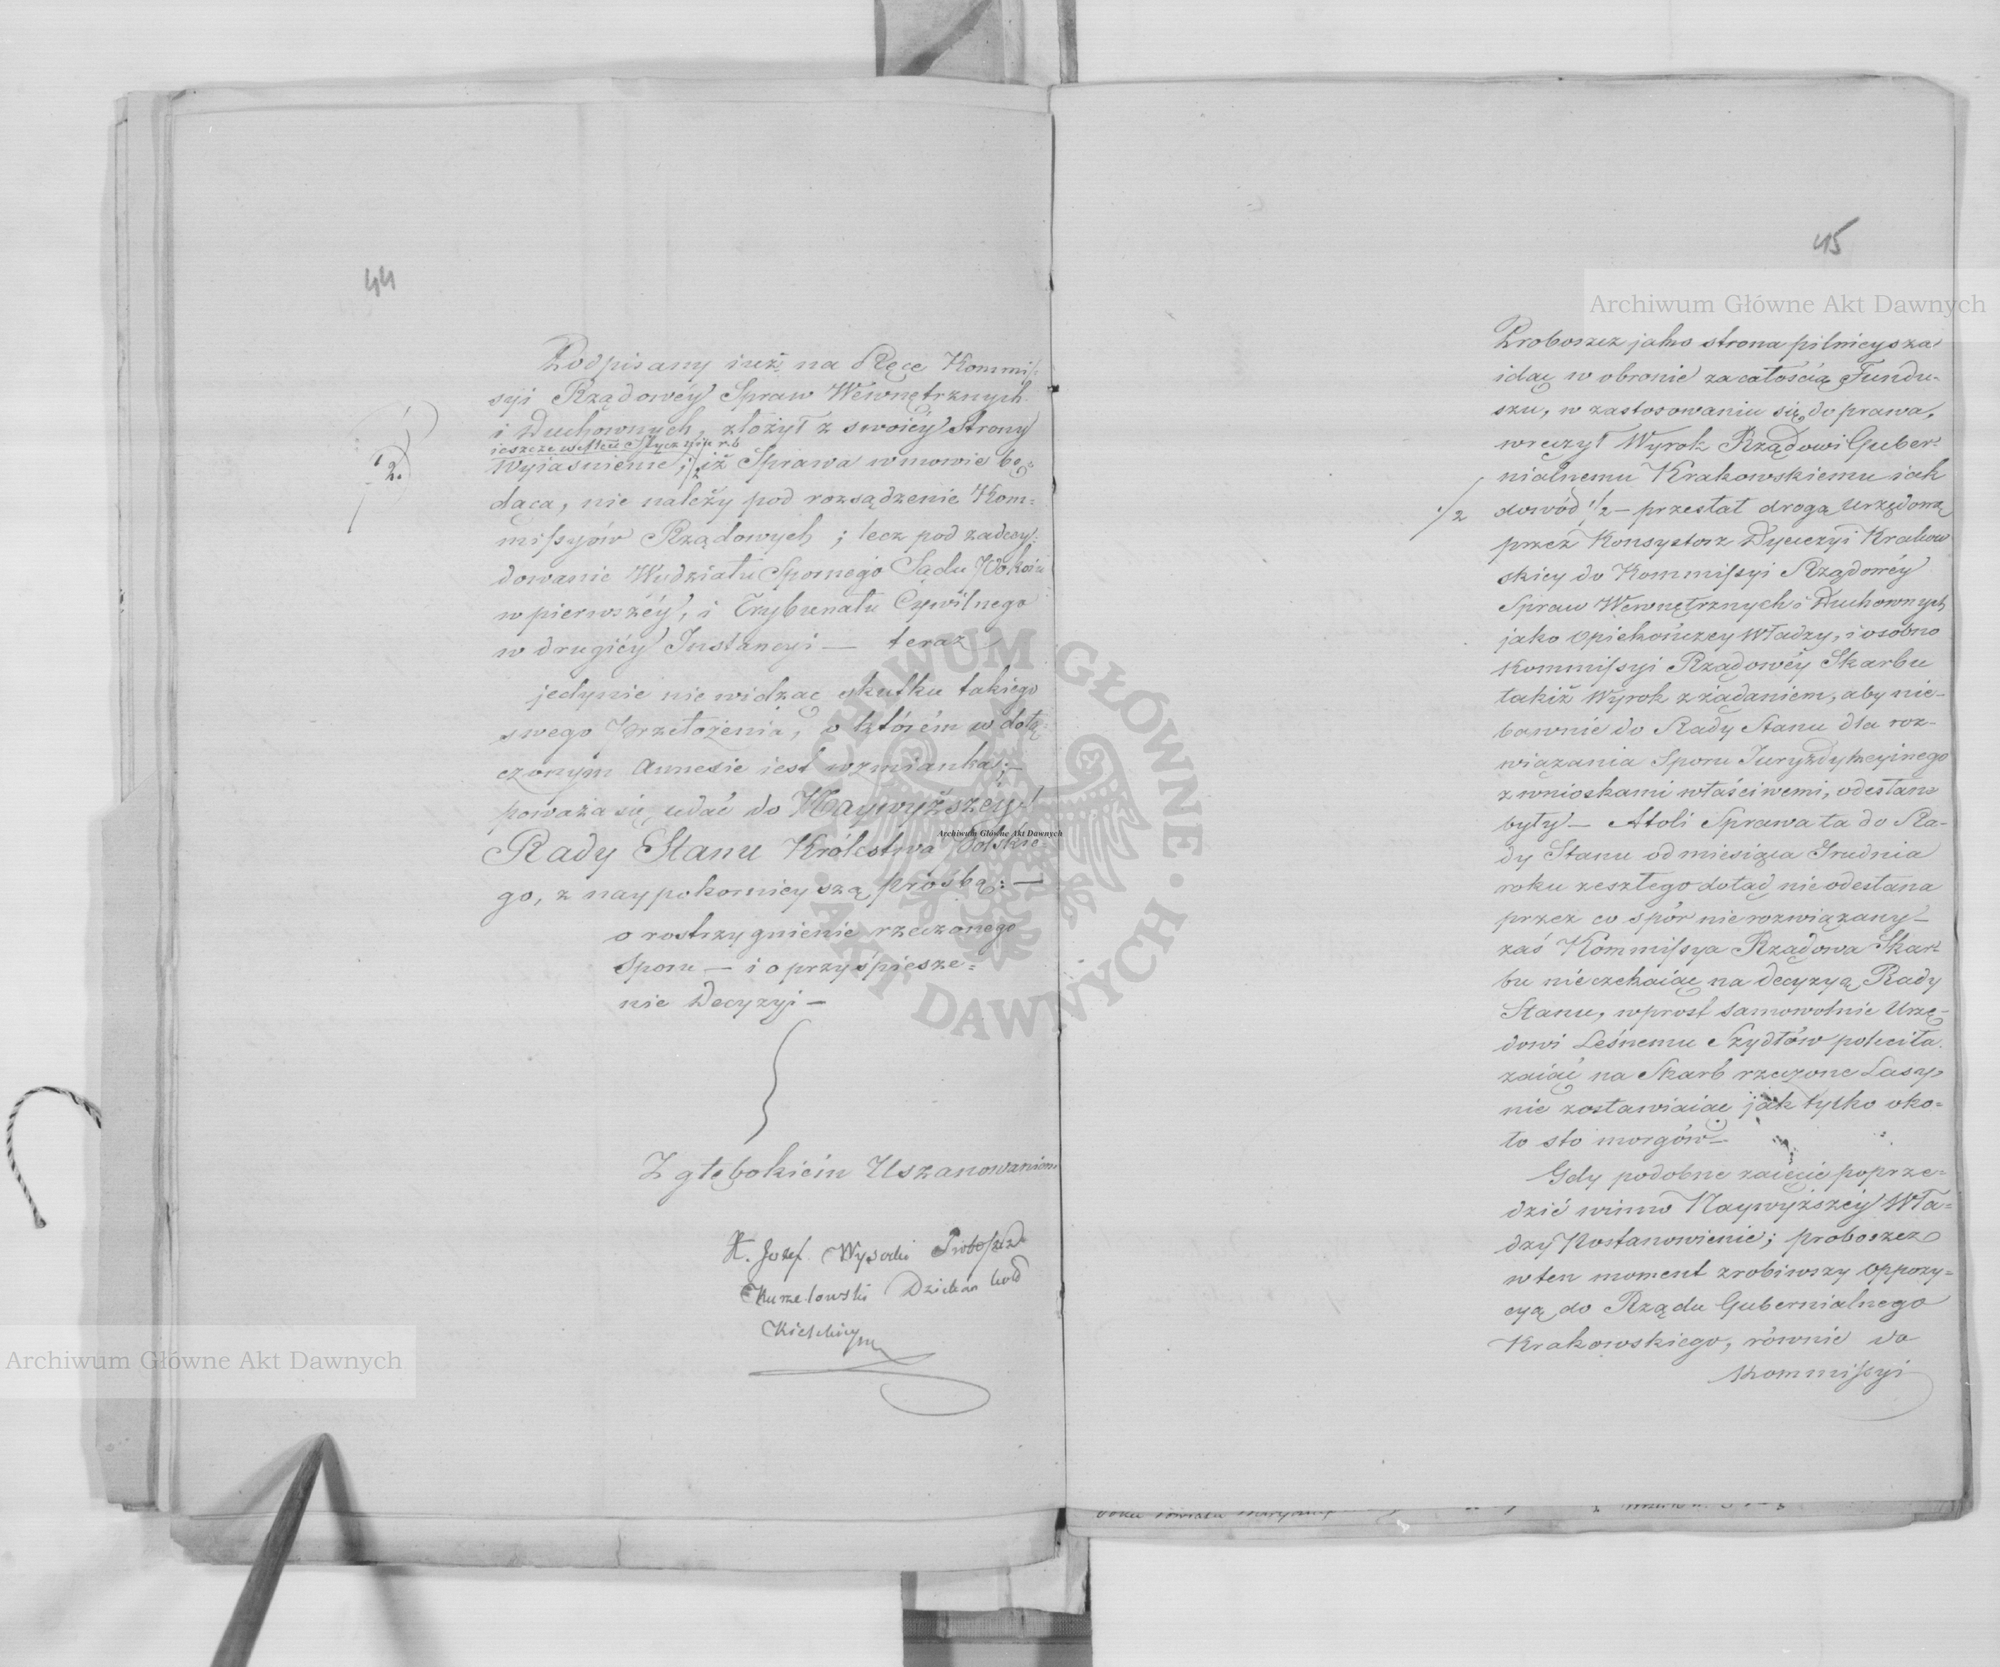 44
Podpisany iuż na Ręce Kommis-
syi Rządowéy Spraw Wewnętrznych
i Duchownych, złożył z swoiéy Strony
ieszcze
Wyiaśnienie; iż Sprawa w mowie bę-
1/2.
dąca, nie należy pod rozsądzenie Kom-
missyów Rządowych; lecz pod zadecy-
dowanie Wydziału Spornego Sądu Pokoiu
w pierwszéy, i Trybunału Cywilnego
w drugiéy Instancyi — teraz
jedynie nie widząc skutku takiego
swego Przełożenia, o którém w dołą-
czonym Annexie iest wzmianka; —
poważa się udać do Naywyższéy
Rady Stanu Królestwa Polskie-
go, z naypokornieyszą prośbą: —
o rostrzygnienie rzeczonego
Sporu — i o przyśpiesze-
nie Decyzyi —
Z głębokiém Uszanowaniem
X. Jozef Wysocki Proboszcz
Kurzelowski Dziekan
45
Proboszcz jako strona pilnieysza
idąc w obronie za całością Fundu-
szu, w zastosowaniu się do prawa,
wręczył Wyrok Rządowi Guber-
nialnemu Krakowskiemu iak
1/2
dowód 1/2 — przesłał drogą Urzędową
przez Konsystorz Dyecezyi Krakow
skiey do Kommissyi Rządowéy
Spraw Wewnętrznych i Duchownych
jako Opiekończey Władzy, i osobno
Kommissyi Rządowéy Skarbu
takiż Wyrok z żądaniem, aby nie-
bawnie do Rady Stanu dla roz-
wiązania Sporu Juryzdykcyinego
z wnioskami właściwemi, odesłane
były — Atoli Sprawa ta do Ra-
dy Stanu od miesiąca Grudnia
roku zeszłego dotąd nie odesłana
przez co spór nierozwiązany —
zaś Kommissya Rządowa Skar-
bu nie czekaiąc na decyzyą Rady
Stanu, wprost samowolnie Urzę-
dowi Leśnemu Szydłów poleciła
zaiąć na Skarb rzeczone Lasy
nie zostawiaiąc jak tylko oko-
ło sto morgów —
Gdy podobne zaięcie poprze-
dzić winno Naywyższéy Wła-
dzy Postanowienie; proboszcz
w ten moment zrobiwszy Oppozy-
cyą do Rządu Gubernialnego
Krakowskiego, równie do
Kommissyi
Archiwum Główne Akt Dawnych
Archiwum Główne Akt Dawnych
Archiwum Główne Akt Dawnych
ARCHIWUM GŁÓWNE
AKT DAWNYCH